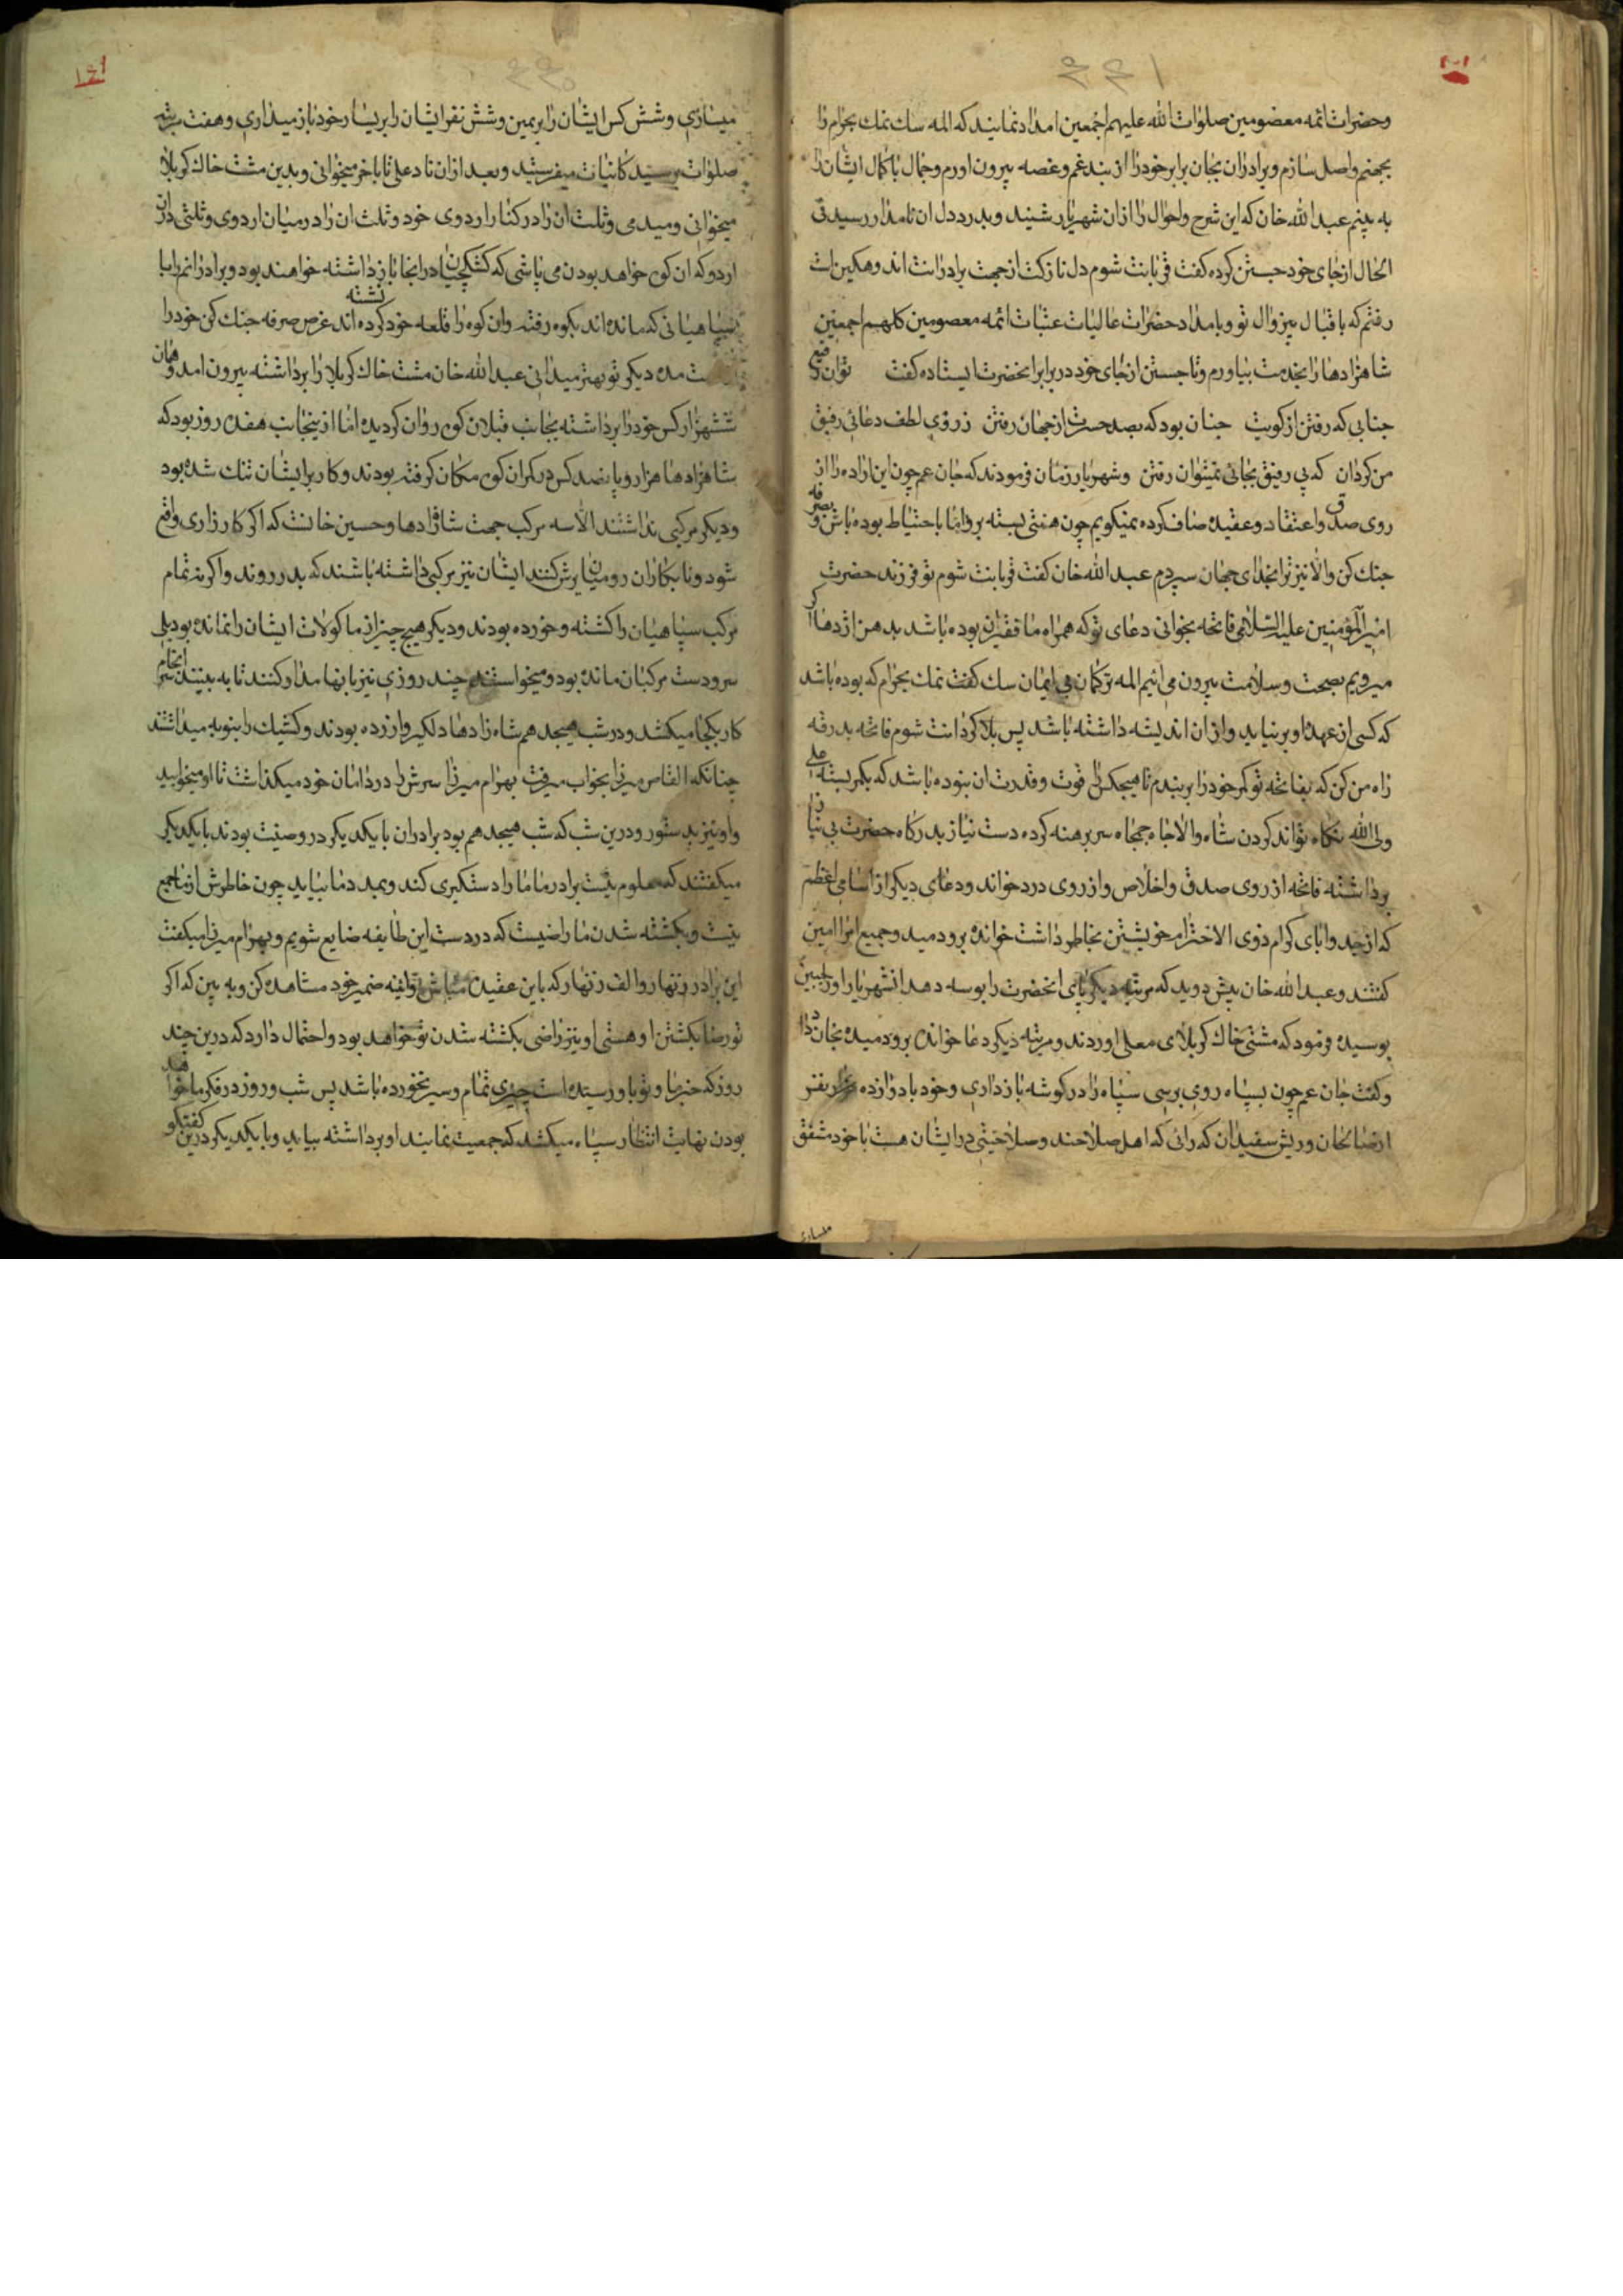 وحضرات ائمه معصومین صلوات الله علیهم اجمعین امداد نمایند که المه سک نمک بحرام را
بجهنم واصل سازم وبرادران بجان برابر خود را از بند غم وغصه بیرون اورم وجمال باکمال ایشان را
به بینم عبدالله خان که این شرح واحوال را ازان شهریار شنید وبدرد دل ان نامدار رسید فی
الحال از جای خود جستن کرده کفت قربانت شوم دل نازکت از جهت برادرانت اند وهکین است
رفتم که باقبال بیزوال تو وبامداد حضرات عالیات عتبات ائمه معصومین کلهم اجمعین
شاهزادها را بخدمت بیاورم وتا جستن از جای خود در برابر انحضرت ایستاده کفت توان رفیع
جنابی که رفتن از کویت چنان بود که بصد حسرت از جهان رفتن ز روی لطف دعائی رفیق
من کردان که بی رفیق بجائی نمیتوان رفتن وشهریار زمان فرمودند که جان عم چون این اراده را از
روی صدق واعتقاد وعقیده صاف کرده نمیکویم چون همتی بسته برو اما با احتیاط بوده باش وبصرفه
جنک کن والا نیز ترا بخدای جهان سپردم عبدالله خان کفت قربانت شوم تو فرزند حضرت
امیرالمؤمنین علیه السلامی فاتحه بخوانی دعای تو که همراه ما فقیران بوده باشد بدهن اژدها اکر
میرویم بصحت وسلامت بیرون می ائیم المه ترکمان بی ایمان سک کفت نمک بحرام که بوده باشد
که کسی از عهده او بر نیاید وازان اندیشه داشته باشد پس بلا کردانت شوم فاتحه بدرقه
راه من کن که بفاتحه تو کمر خود را بر بندم تا هیچکس را قوت وقدرت ان نبوده باشد که بکمر بسته علی
ولی الله نکاه تواند کردن شاه والاجاه جمجاه سر برهنه کرده دست نیاز بدرکاه حضرت بی نیاز
برداشته فاتحه از روی صدق واخلاص واز روی درد خواند ودعای دیکر از اسامی اعظم
که از جد وابای کرام ذوی الاحترام خویشتن بخاطر داشت خوانده برو دمید وجمیع امرا امین
کفتند وعبدالله خان پیش دوید که مرتبه دیکر پای انحضرت را بوسه دهد انشهریار اورا جبین
بوسیده فرمود که مشتی خاک کربلای معلی اوردند ومرتبه دیکر دعا خوانده برو دمیده بخان داد
وکفت جان عم چون بسپاه روی برسی سپاه را در کوشه باز داری وخود با دوازده نفر
از خانان وریش سفیدان که رانی که اهل صلاحند وصلاحیتی در ایشان هست با خود متفق
میسازی وشش کس ایشان را بر یمین وشش نفر ایشان را بر یسار خود باز میداری وهفت مرتبه
صلوات بر سید کاینات میفرستید وبعد ازان ناد علی تا باخر میخوانی وبدین مشت خاک کربلا
میخوانی ومیدمی وثلث ان را در کنار اردوی خود وثلث ان را در میان اردوی وثلثی دران
اردو که ان کوی خواهد بودن می پاشی که کشکچیان را در انجا باز داشته خواهند بود وبرادرانم را با
سپاهیانی که مانده اند بکوه رفته وان کوه را قلعه خود کرده اند نشسته غرض صرفه جنک کن خود را
مده دیکر تو بهتر میدانی عبدالله خان مشت خاک کربلا را برداشته بیرون امد وهمان
ششهزار کس خود را برداشته بجانب قبلان کوی روان کردید اما از ینجانب هفده روز بود که
شاهزادها هزار وپانصد کس در کمران کوی مکان کرفته بودند وکار بر ایشان تنک شده بود
ودیکر مرکبی نداشتند الا سه مرکب جهت شاهزادها وحسین خانت که اکر کارزاری واقع
شود ونابکاران رومیان یرش کنند ایشان نیز مرکبی داشته باشند که بدر روند واکر نه تمام
مرکب سپاهیان را کشته وخورده بودند ودیکر هیچ چیز از ماکولات ایشان را نمانده بود ولی
سر ودست مرکبان مانده بود ومیخواستند چند روزی نیز بانها مدار کنند تا به بینند سرانجام
کار بکجا میکشد ودر شب هیجدهم شاه زادها دلکیر وازرده بودند وکشیک را بنوبه میداشتند
چنانکه القاص میرزا بخواب میرفت بهرام میرزا سرش را در دامان خود میکذاشت تا او میخوابید
واو نیز بدستور ودرین شب که شب هیجدهم بود برادران با یکدیکر در وصیت بودند با یکدیکر
میکفتند که معلوم نیست برادر ما ما را دستکیری کند وبمدد ما بیاید چون خاطرش از ما جمع
نیست وبکشته شدن ما راضیست که در دست این طایفه ضایع شویم وبهرام میرزا میکفت
این برادر زنهار والف زنهار که باین عقیده مباش تو ایینه ضمیر خود مشاهده کن وبه بین که اکر
تو رضا بکشتن او هستی او نیز راضی بکشته شدن تو خواهد بود واحتمال دارد که درین چند
روز که خبر ما وتو باو رسیده است چیزی تمام وسیر نخورده باشد پس شب وروز در فکر ما خواهد
بودن نهایت انتظار سپاه میکشد که جمعیت نمایند او برداشته بیاید وبا یکدیکر درین کفتکو